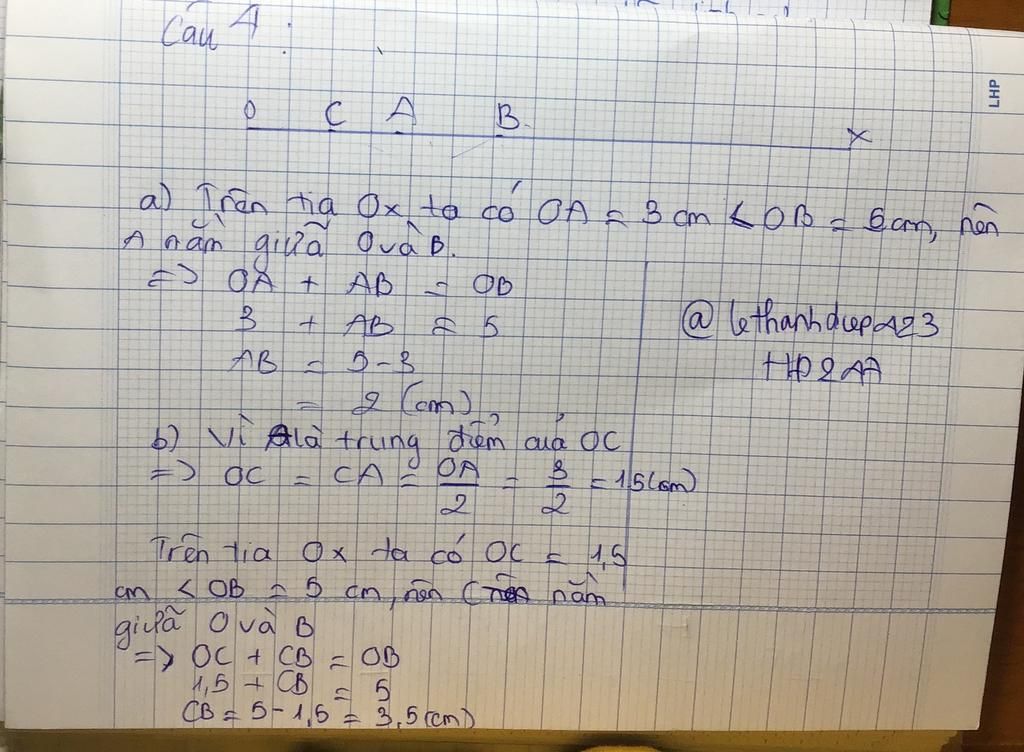 Câu 4:
LHP
O C A B x
a) Trên tia Ox, ta có OA = 3 cm < OB = 5 cm, nên
A nằm giữa O và B.
=> OA + AB = OB
3 + AB = 5
@ lethanhdiep123
AB = 5 - 3
HD247
= 2 (cm)
b) Vì A là trung điểm của OC
=> OC = CA = OA/2 = 3/2 = 1,5 (cm)
Trên tia Ox ta có OC = 1,5
cm < OB = 5 cm, nên C nằm
giữa O và B
=> OC + CB = OB
1,5 + CB = 5
CB = 5 - 1,5 = 3,5 (cm)